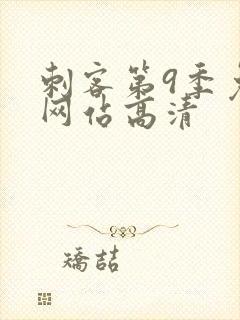 刺客第9季
网佔高清
矯喆